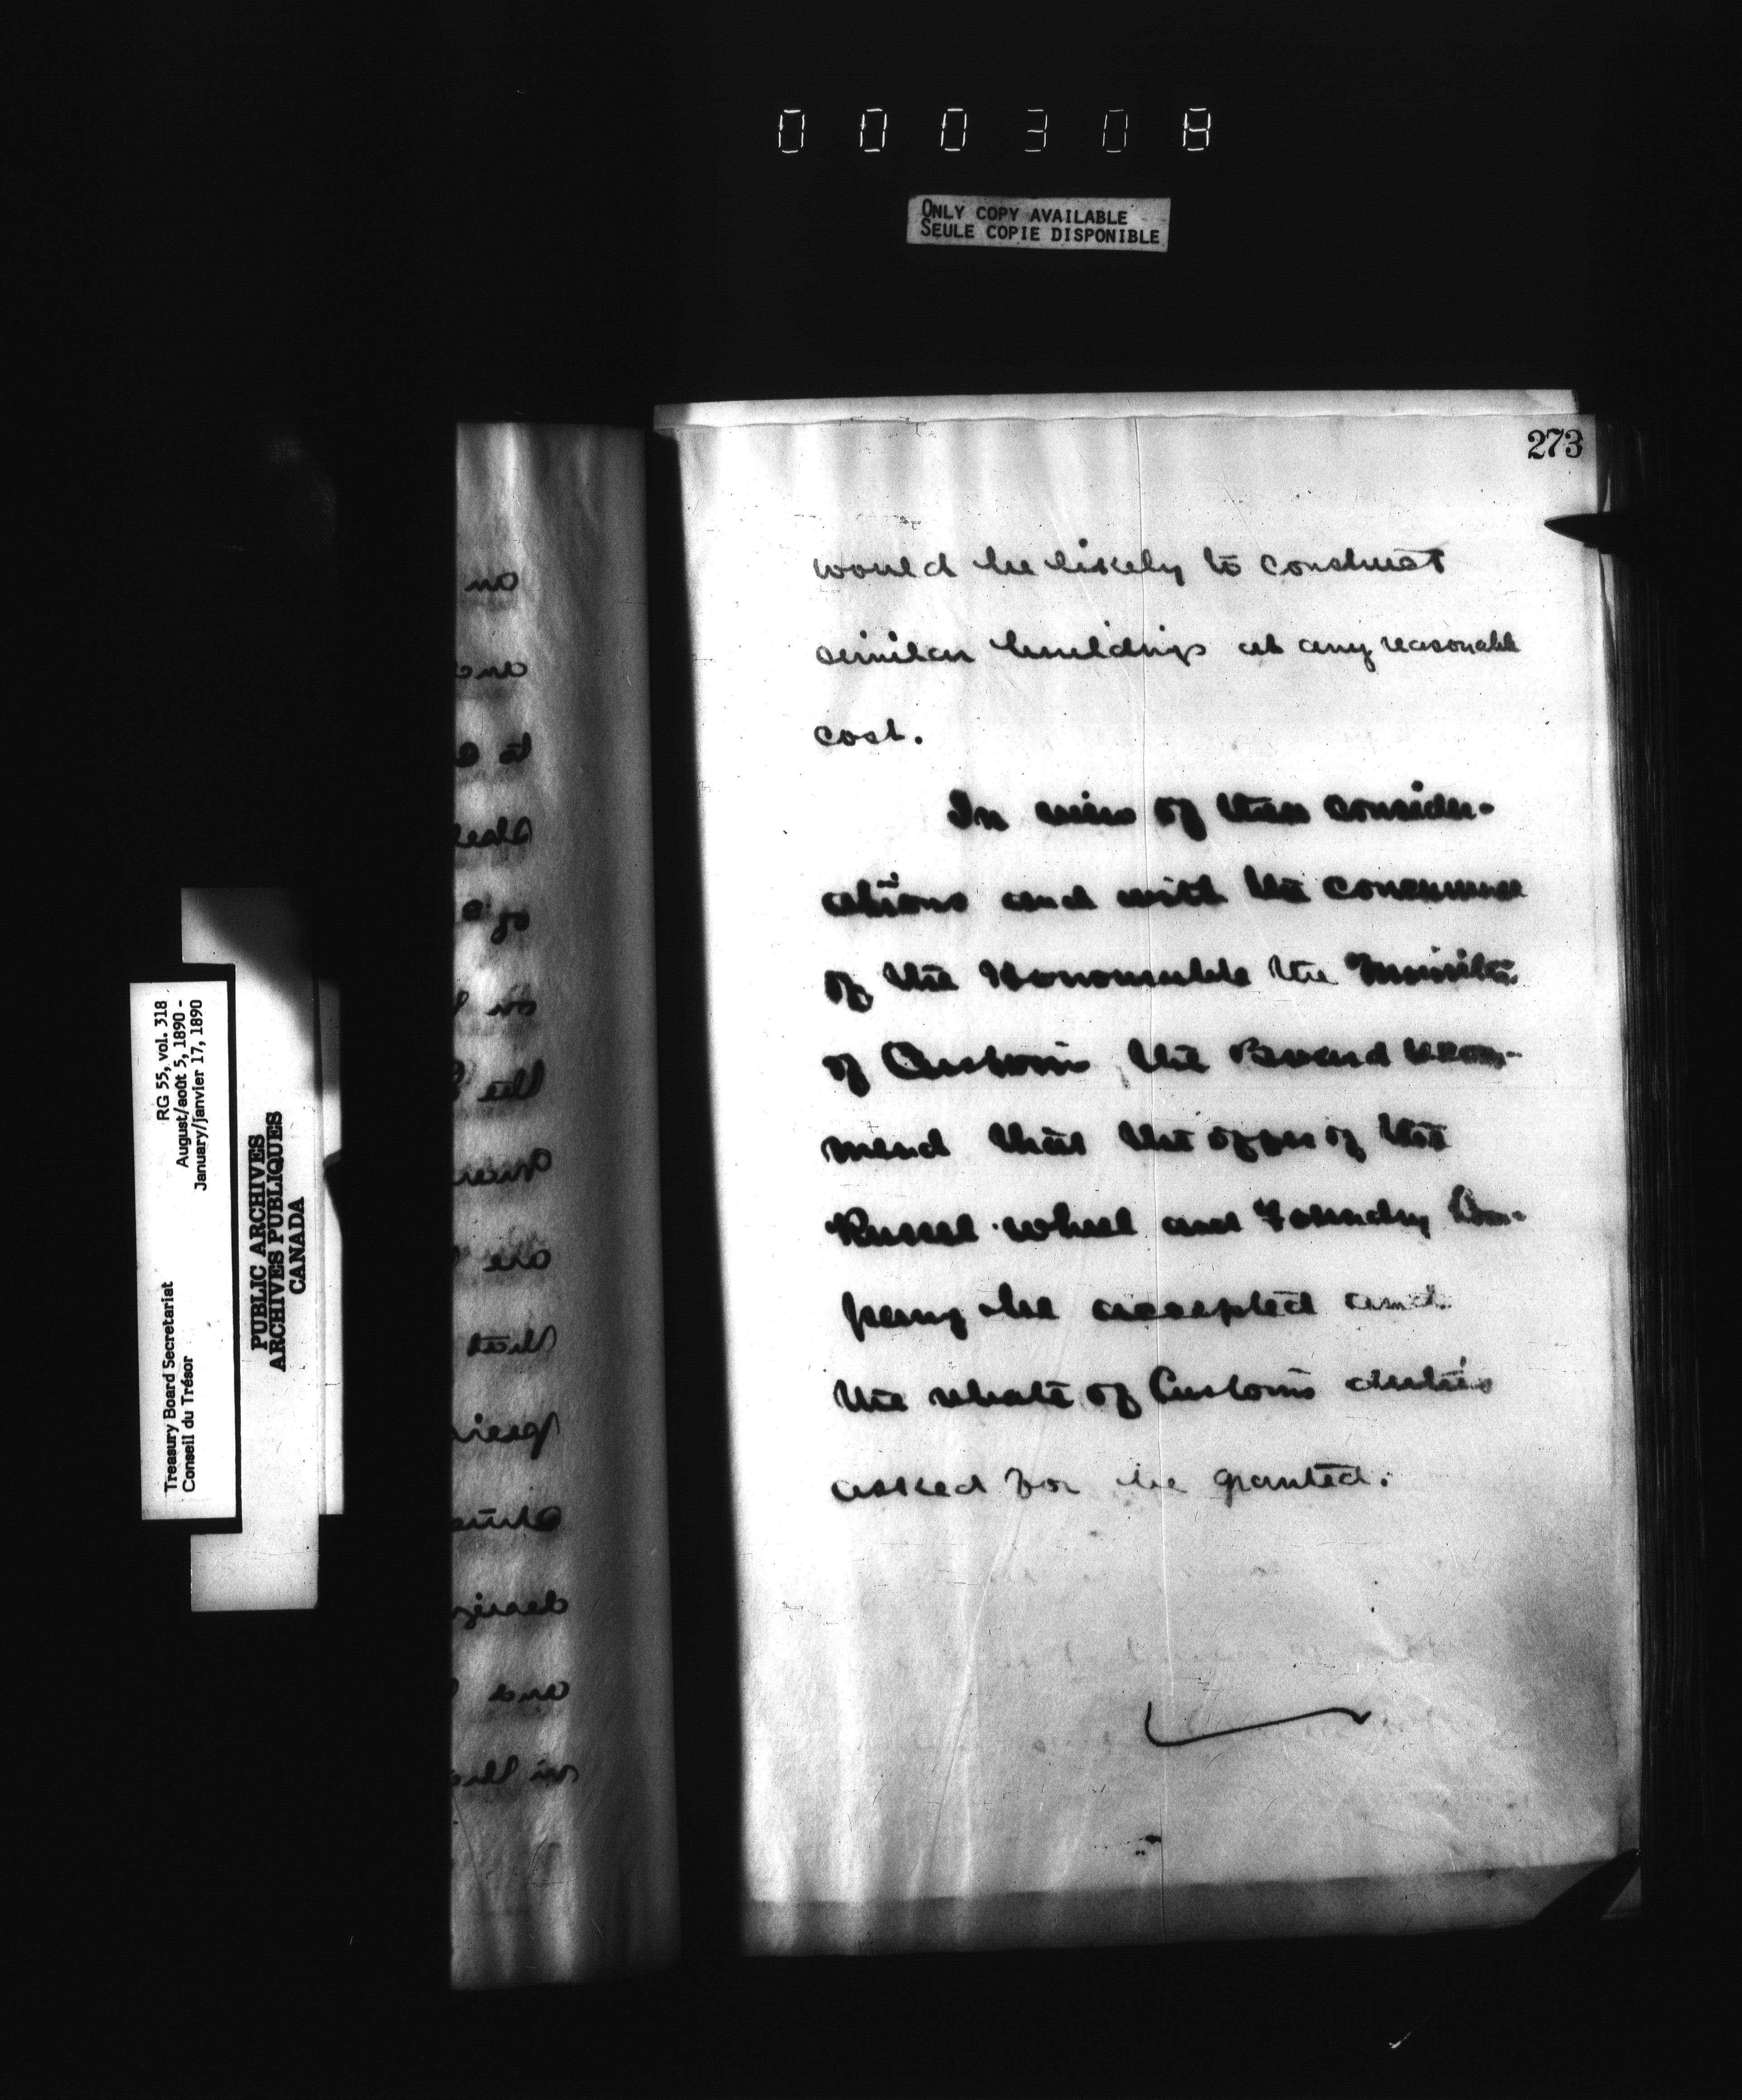 000308
ONLY COPY AVAILABLE
SEULE COPIE DISPONIBLE
273
would be likely to construct
similar buildings at any reasonable
cost.
In view of these consider-
ations and with the concurrence
of the Honourable the Minister
of Customs the Board recom-
mend that the offer of the
Russel wheel and Foundry Com-
pany be accepted and
the rebate of Customs duties
asked for be granted.
RG 55, vol. 318
August/août 5, 1890 -
January/janvier 17, 1890
Treasury Board Secretariat
Conseil du Trésor
PUBLIC ARCHIVES
ARCHIVES PUBLIQUES
CANADA